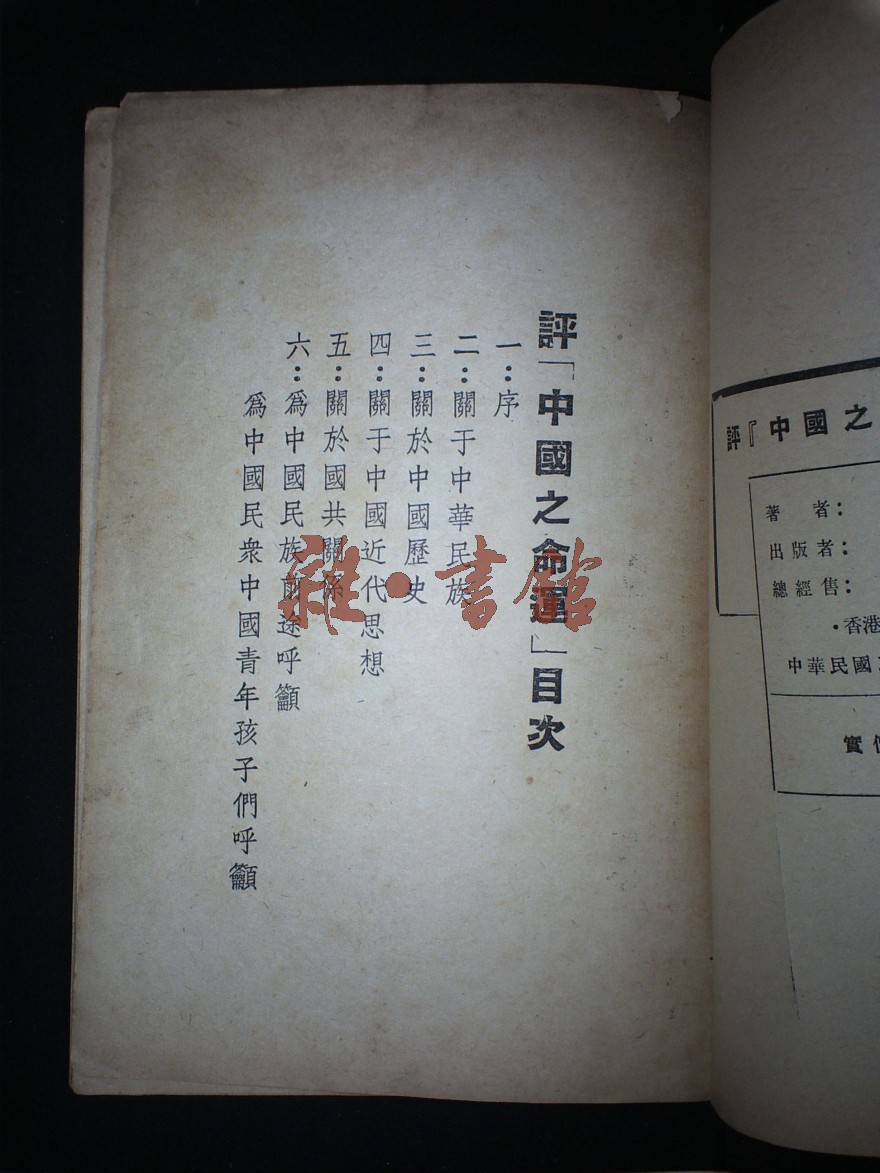 評「中國之命運」目次
一：序
二：關于中華民族
三：關於中國歷史
四：關于中國近代思想
五：關於國共關係
六：爲中國民族前途呼籲
爲中國民衆中國青年孩子們呼籲
雜·書館
評『中國之
著者：
出版者：
總經售：
•香港
中華民國
實